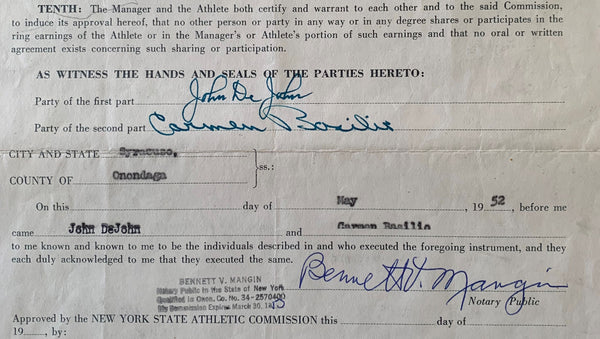 TENTH: The Manager and the Athlete both certify and warrant to each other and to the said Commission,
to induce its approval hereof, that no other person or party in any way or in any degree shares or participates in the
ring earnings of the Athlete or in the Manager's or Athlete's portion of such earnings and that no oral or written
agreement exists concerning such sharing or participation.
AS WITNESS THE HANDS AND SEALS OF THE PARTIES HERETO:
Party of the first part John De John
Party of the second part Carmen Basilio
CITY AND STATE Syracuse,
ss.:
COUNTY OF Onondaga
On this day of May, 1952, before me
came John DeJohn and Carmen Basilio
to me known and known to me to be the individuals described in and who executed the foregoing instrument, and they
each duly acknowledged to me that they executed the same.
Bennett V. Mangin
Notary Public
BENNETT V. MANGIN
Notary Public in the State of New York
Qualified in Onon. Co. No. 34-2570400
My Commission Expires March 30, 1953
Approved by the NEW YORK STATE ATHLETIC COMMISSION this day of
19, by: